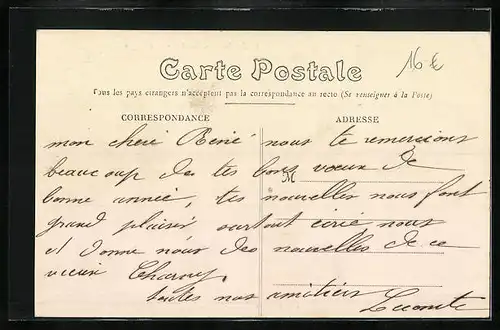 16 €
Carte Postale
Tous les pays étrangers n'acceptent pas la correspondance au recto (Se renseigner à la Poste)
CORRESPONDANCE
ADRESSE
M
mon cheri René nous te remercions
beaucoup de tes bons voeux de
bonne année, tes nouvelles nous font
grand plaisir surtout écrie nous
et donne nous des nouvelles de ce
vieux Charny.
toutes nos amitiers
Lecomte